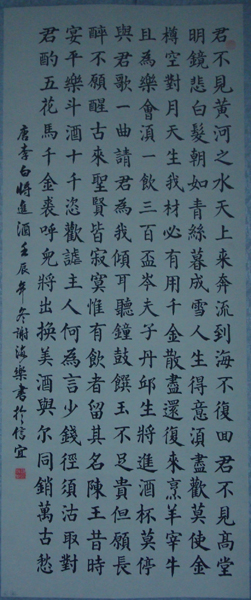 君不見黃河之水天上來奔流到海不復回君不見高堂
明鏡悲白髮朝如青絲暮成雪人生得意須盡歡莫使金
樽空對月天生我材必有用千金散盡還復來烹羊宰牛
且為樂會須一飲三百盃岑夫子丹邱生將進酒杯莫停
與君歌一曲請君為我傾耳聽鐘鼓饌玉不足貴但願長
醉不願醒古來聖賢皆寂寞惟有飲者留其名陳王昔時
宴平樂斗酒十千恣歡謔主人何為言少錢徑須沽取對
君酌五花馬千金裘呼兒將出換美酒與尔同銷萬古愁
唐李白將進酒壬辰年冬謝樂書於信宜